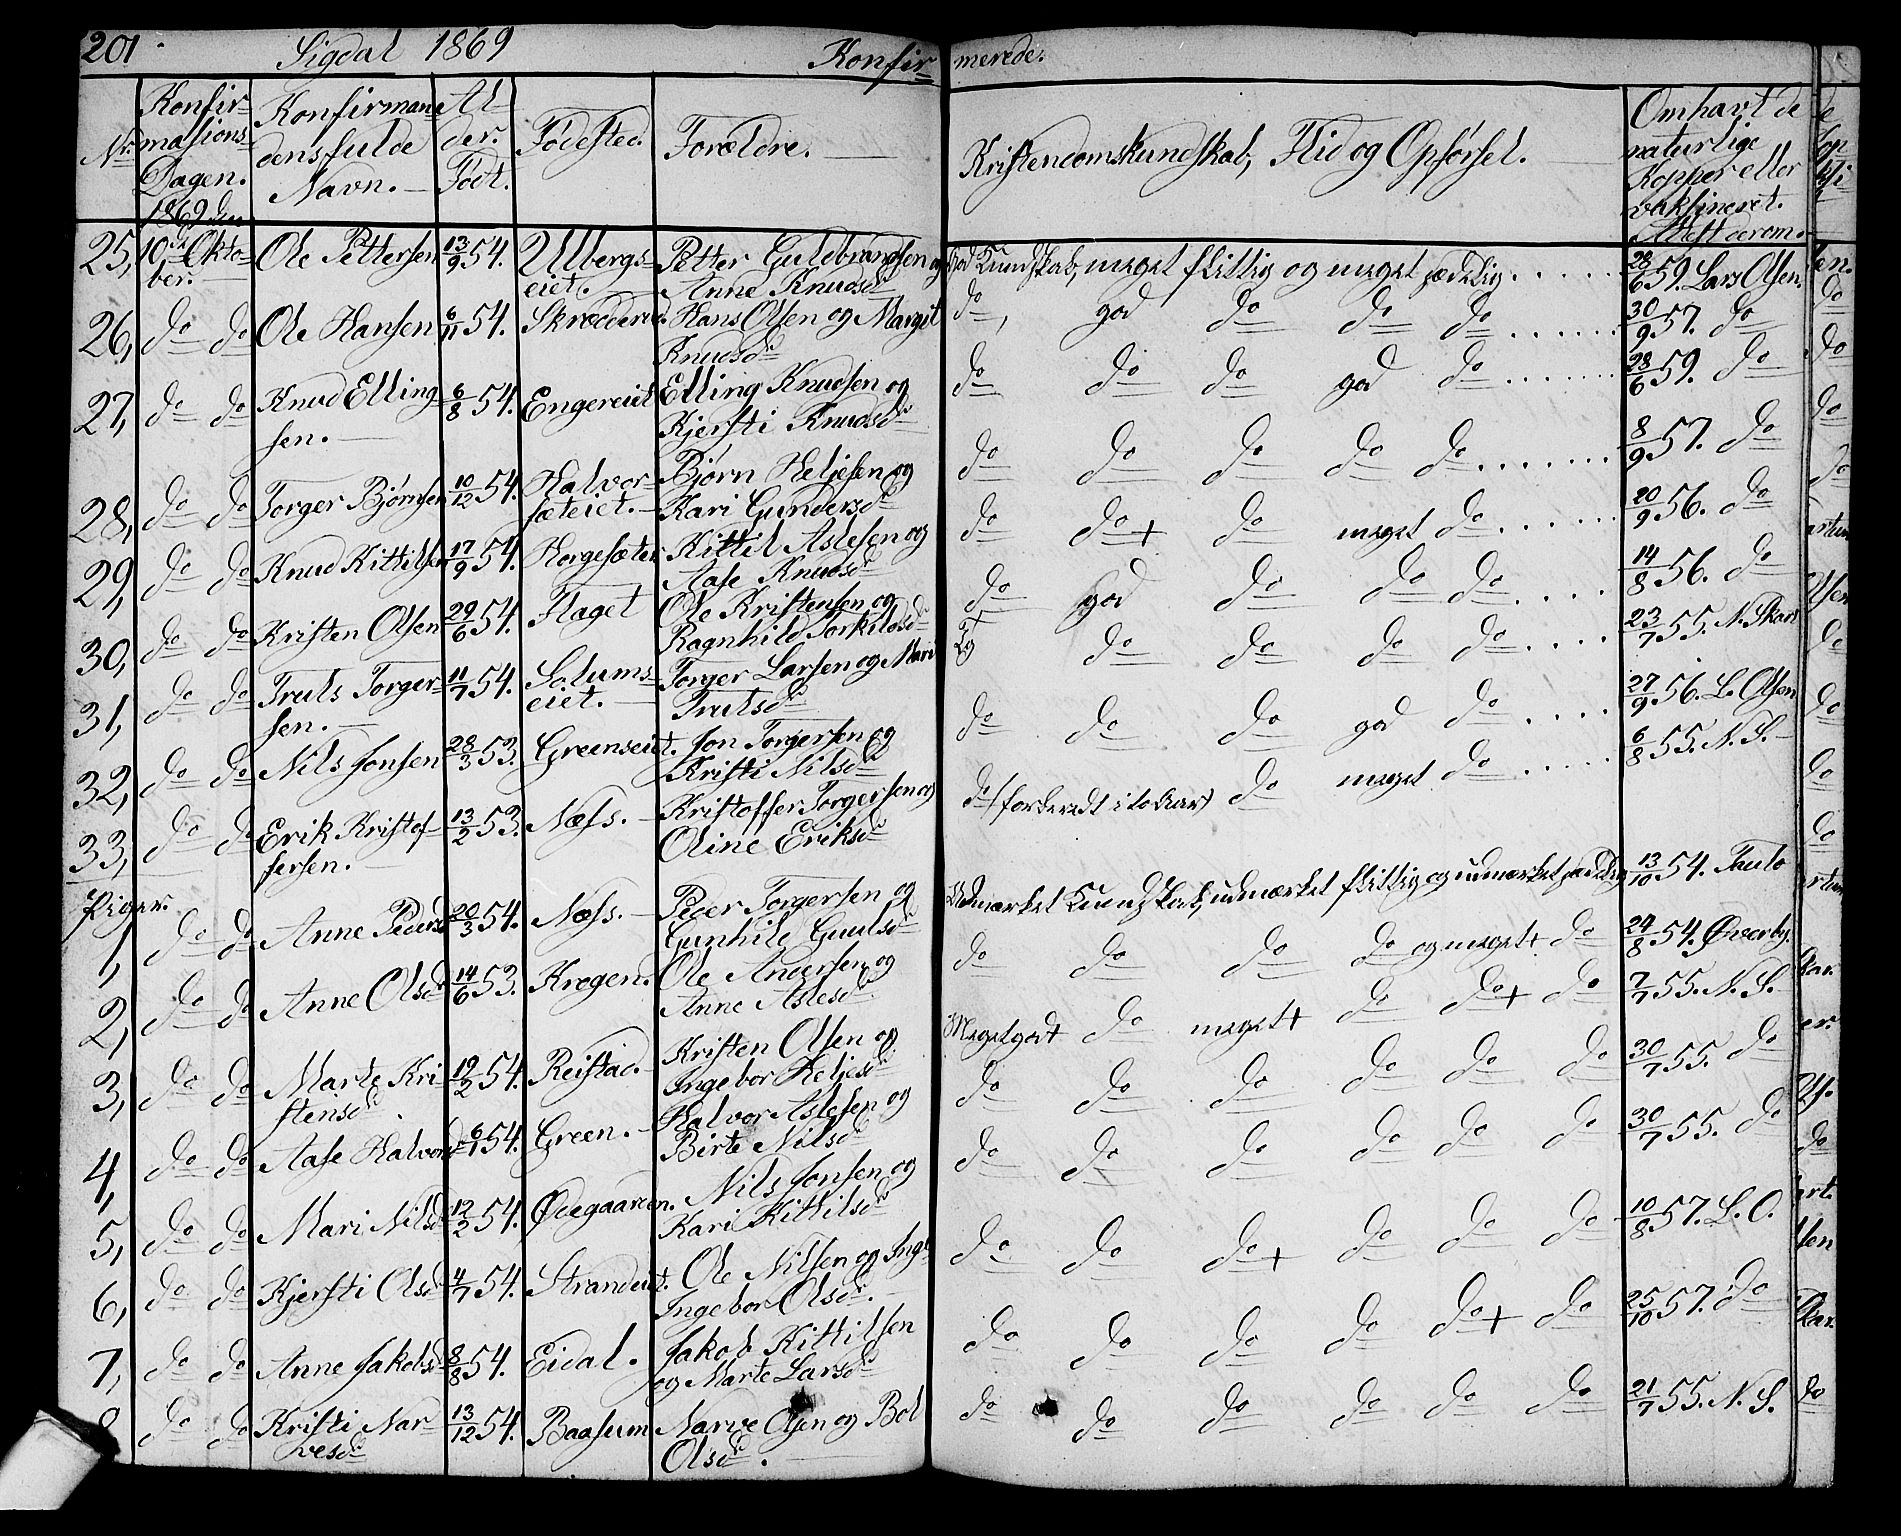 201. Sigdal 1869 Konfir- merede.
Nr. Konfirmasions Dagen. 1869 den Konfirmandens fulde Navn. Alder. Født. Fødested. Forældre. Kristendomskundskab, Flid og Opførsel. Omhavt de naturlige Kopper eller vaksineret. Attest derom.
25, 10de Oktober. Ole Pettersen 13/9 54. Ulbergseiet. Petter Guldbrandsen og Anne Knudsd. God Kundskab, meget flittig og meget sædelig. 28/6 59. Lars Olsen.
26, do do Ole Hansen 6/11 54. Skrædderud. Hans Olsen og Margit Knudsd. do, god do do do 30/9 57. do
27, do do Knud Ellingsen. 6/8 54. Engereiet Elling Knudsen og Kjersti Knudsd. do do do god do 28/6 59. do
28, do do Torger Bjørnsen 10/12 54. Halvorsæteiet. Bjørn Heljesen og Kari Gundersd. do do do do do 8/9 57. do
29, do do Knud Kittilsen 17/9 54. Horgesæter Kittil Aslesen og Aase Knudsd. do do+ do meget do 20/9 56. do
30, do do Kristen Olsen 29/6 54. Flaget Ole Kristensen og Ragnhild Torkildsd. do god do do do 14/8 56. do
31, do do Truls Torgersen. 11/7 54. Solumseiet. Torger Larsen og Mari Trulsd. Tg do do do do 23/7 55. N. Skars
32, do do Nils Jonsen 28/3 53. Greenseiet. Jon Torgersen og Kristi Nilsd. do do do god do 27/9 56. L. Olsen
33, do do Erik Kristoffersen. 13/2 53. Næss. Kristoffer Torgersen og Oline Eriksd. do (forberedt i to Aar) do meget do 6/8 55. N. S.
Piger.
1, do do Anne Pedersd. 20/3 54. Næss. Peder Torgersen og Gunhild Guulsd. Udmærket Kundskab, udmærket flittig og udmærket sædelig 13/10 54. Thulo
2, do do Anne Olsd. 14/6 53. Kragen. Ole Andersen og Anne Aslesd. do do do do og meget+ do 24/8 54. Øverby.
3, do do Marte Kristensd. 19/2 54. Reistad. Kristen Olsen og Ingebor Heljesd. Meget godt do meget+ do do+ do 7/7 55. N. S.
4, do do Aase Halvorsd. 6/1 54. Green. Halvor Aslesen og Birte Nilsd. do do do do do do 30/7 55. do
5, do do Mari Nilsd. 12/2 54. Ødegaarden. Nils Jonsen og Kari Kittilsd. do do do do do do 30/7 55. do
6, do do Kjersti Olsd. 4/7 54. Strandeiet. Ole Nilsen og Ingebor Olsd. do do do+ do do do 10/8 57. L. O.
7, do do Anne Jakobsd. 8/8 54. Eidal. Jakob Kittilsen og Marte Larsd. do do do do do+ do 25/10 57. do
8 do do Kristi Narvesd. 13/12 54. Baasum Narve Olsen og Bol Olsd. do do do do do do 21/7 55. N. S.